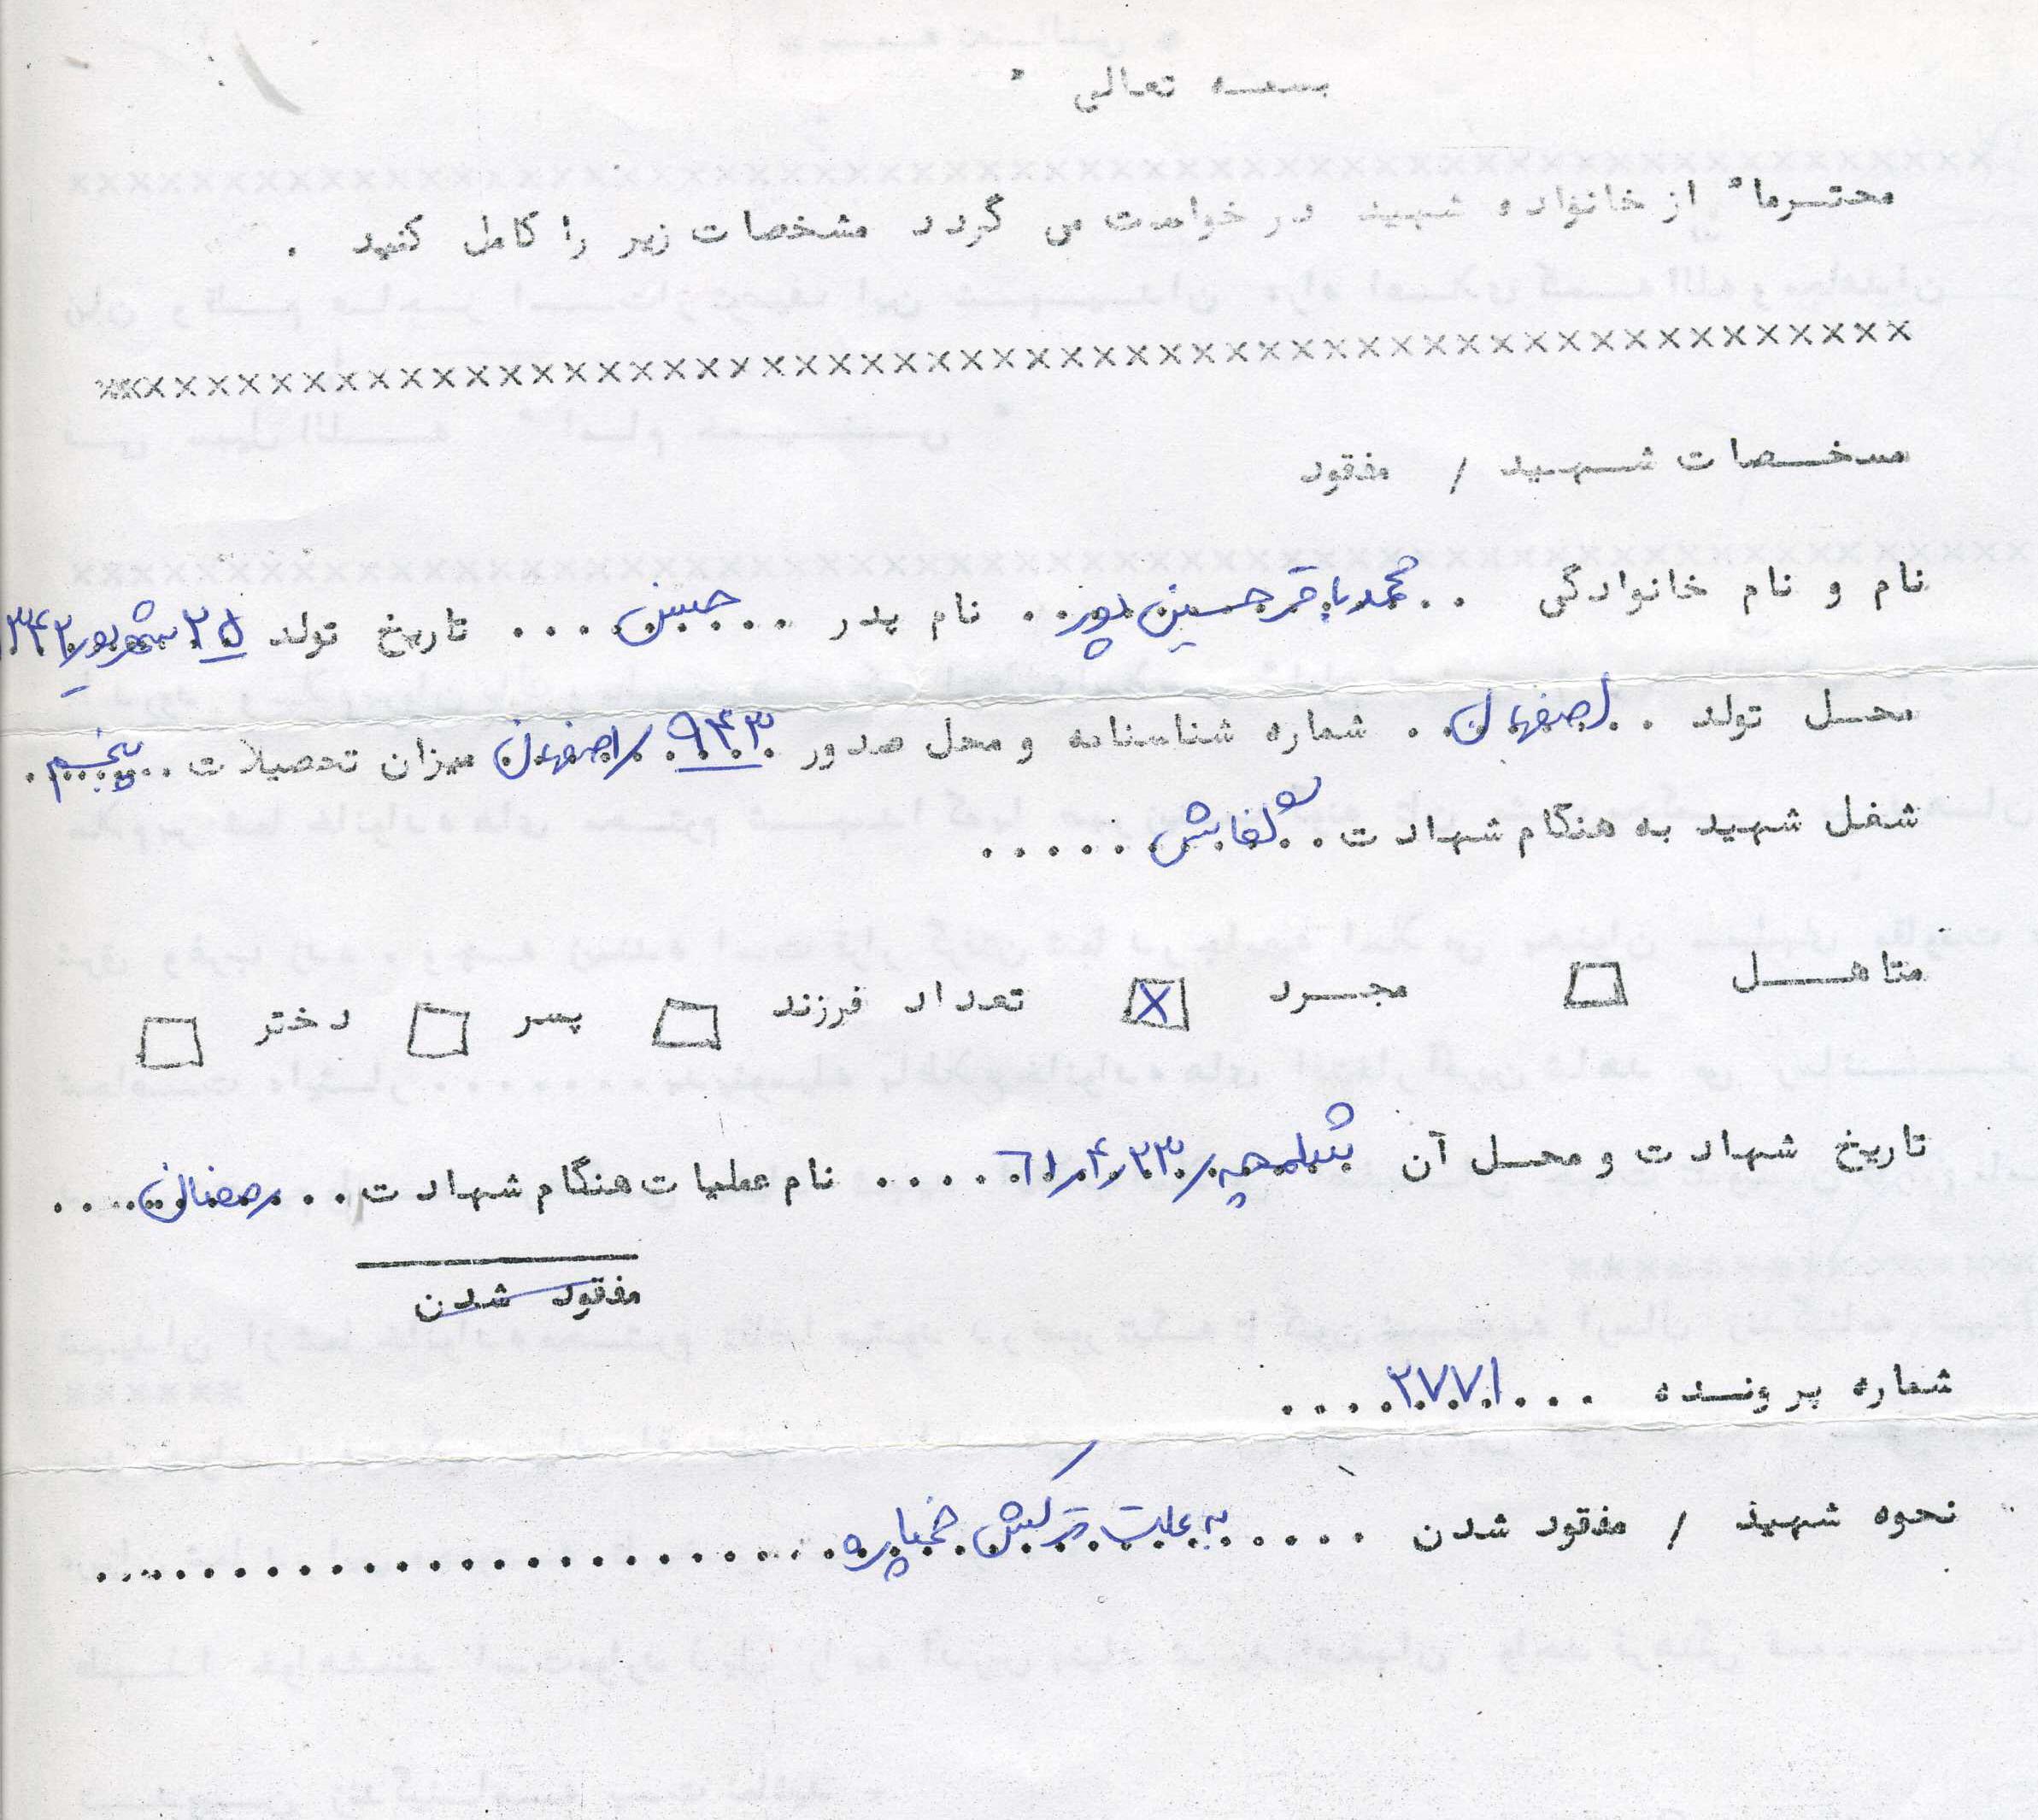 بسمه تعالی
محترما" از خانواده شهید درخواست می گردد مشخصات زیر را کامل کنید .
××××××××××××××××××××××××××××××××××××××××××××××××××××××××
مسخصات شهید / مفقود
نام و نام خانوادگی .. محمدباقر حسین پور .. نام پدر ... حسین .... تاریخ تولد ۲۵ شهریور ۱۳۴۲
محل تولد .. اصفهان .. شماره شناسنامه و محل صدور ۹۴۳ / اصفهان میزان تحصیلات .. پنجم ..
شغل شهید به هنگام شهادت .. کفاش ......
متاهل ☐ مجرد ☒ تعداد فرزند ☐ پسر ☐ دختر ☐
تاریخ شهادت و محل آن شلمچه ۶۱/۴/۲۳ ..... نام عملیات هنگام شهادت .. رمضان ....
مفقود شدن
شماره پرونده ... ۲۷۷۱ ....
نحوه شهید / مفقود شدن ..... به علت ترکش خمپاره ........................